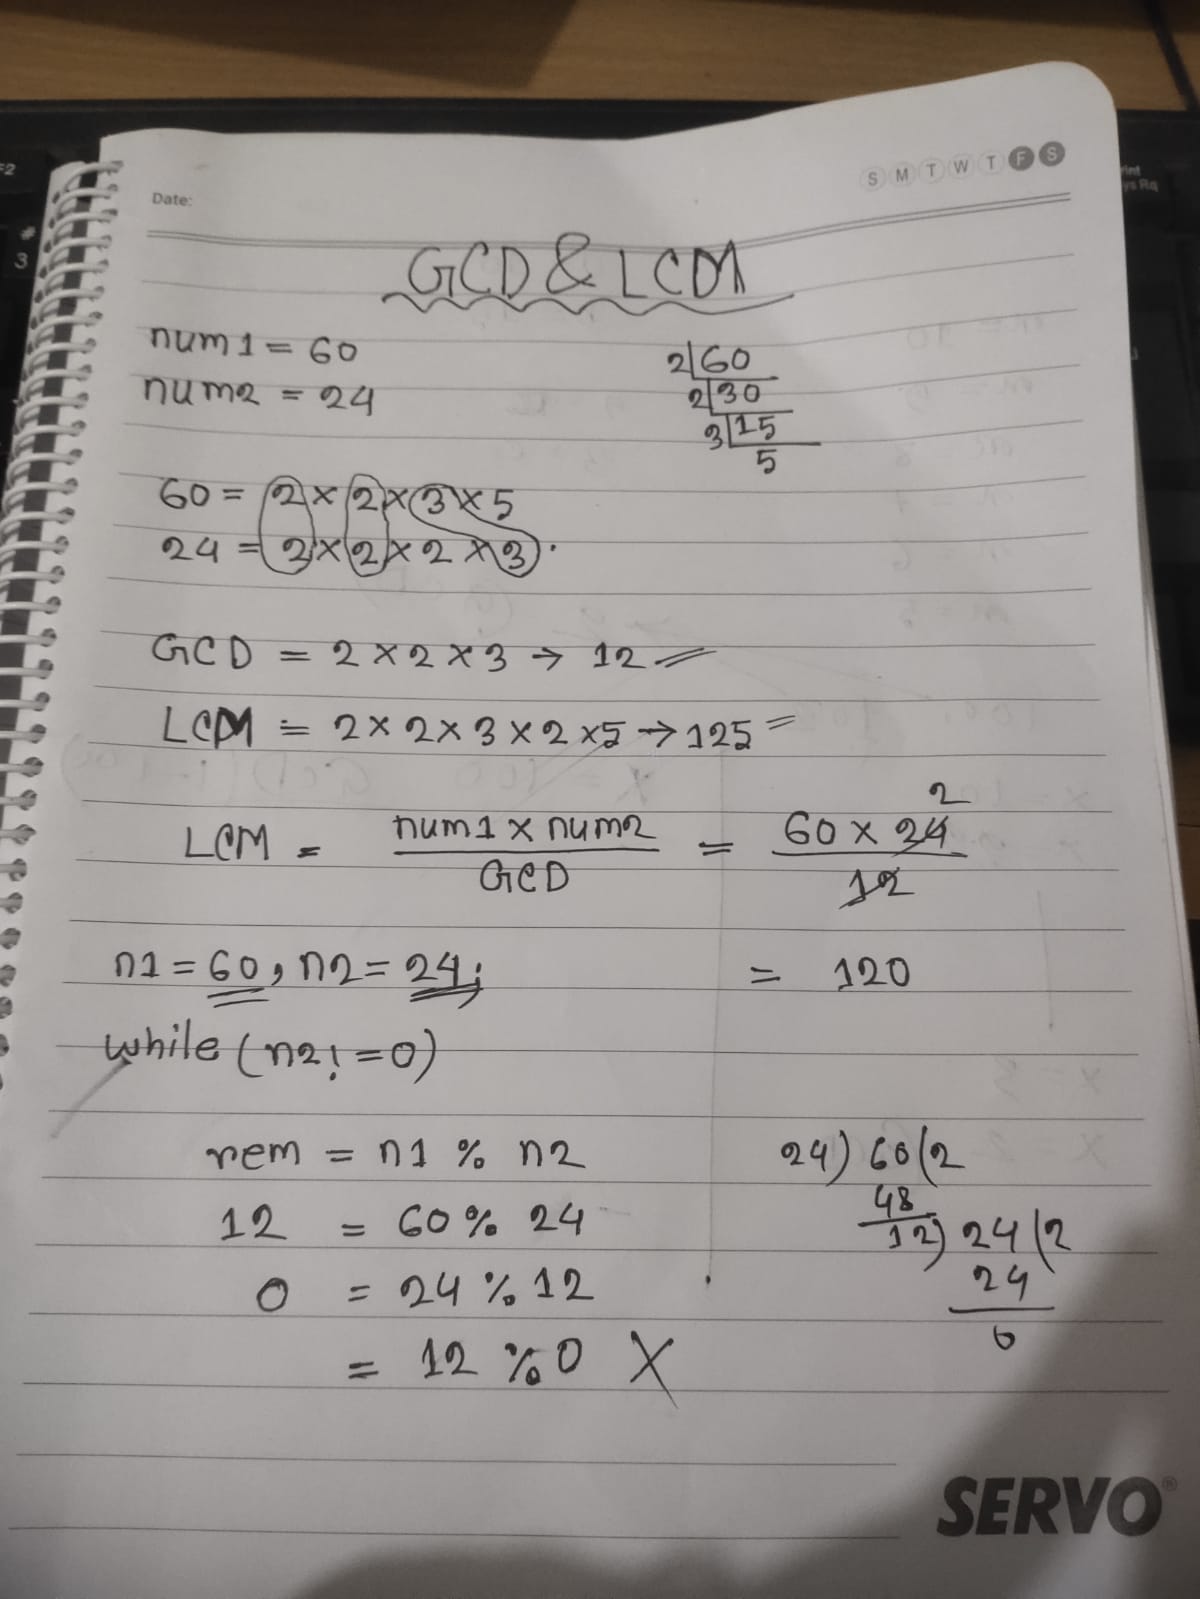 F2
#
3
Print
Sys Rq
Date:
S M T W T F S
GCD & LCM
num1 = 60
num2 = 24
2|60
2|30
3|15
5
60 = 2 × 2 × 3 × 5
24 = 2 × 2 × 2 × 3.
GCD = 2 × 2 × 3 → 12
LCM = 2 × 2 × 3 × 2 × 5 → 125
2
LCM = num1 × num2 = 60 × 24
GCD 12
n1 = 60, n2 = 24; = 120
while (n2 != 0)
rem = n1 % n2
12 = 60 % 24
0 = 24 % 12
= 12 % 0 X
24) 60 (2
48
12) 24 (2
24
0
SERVO®